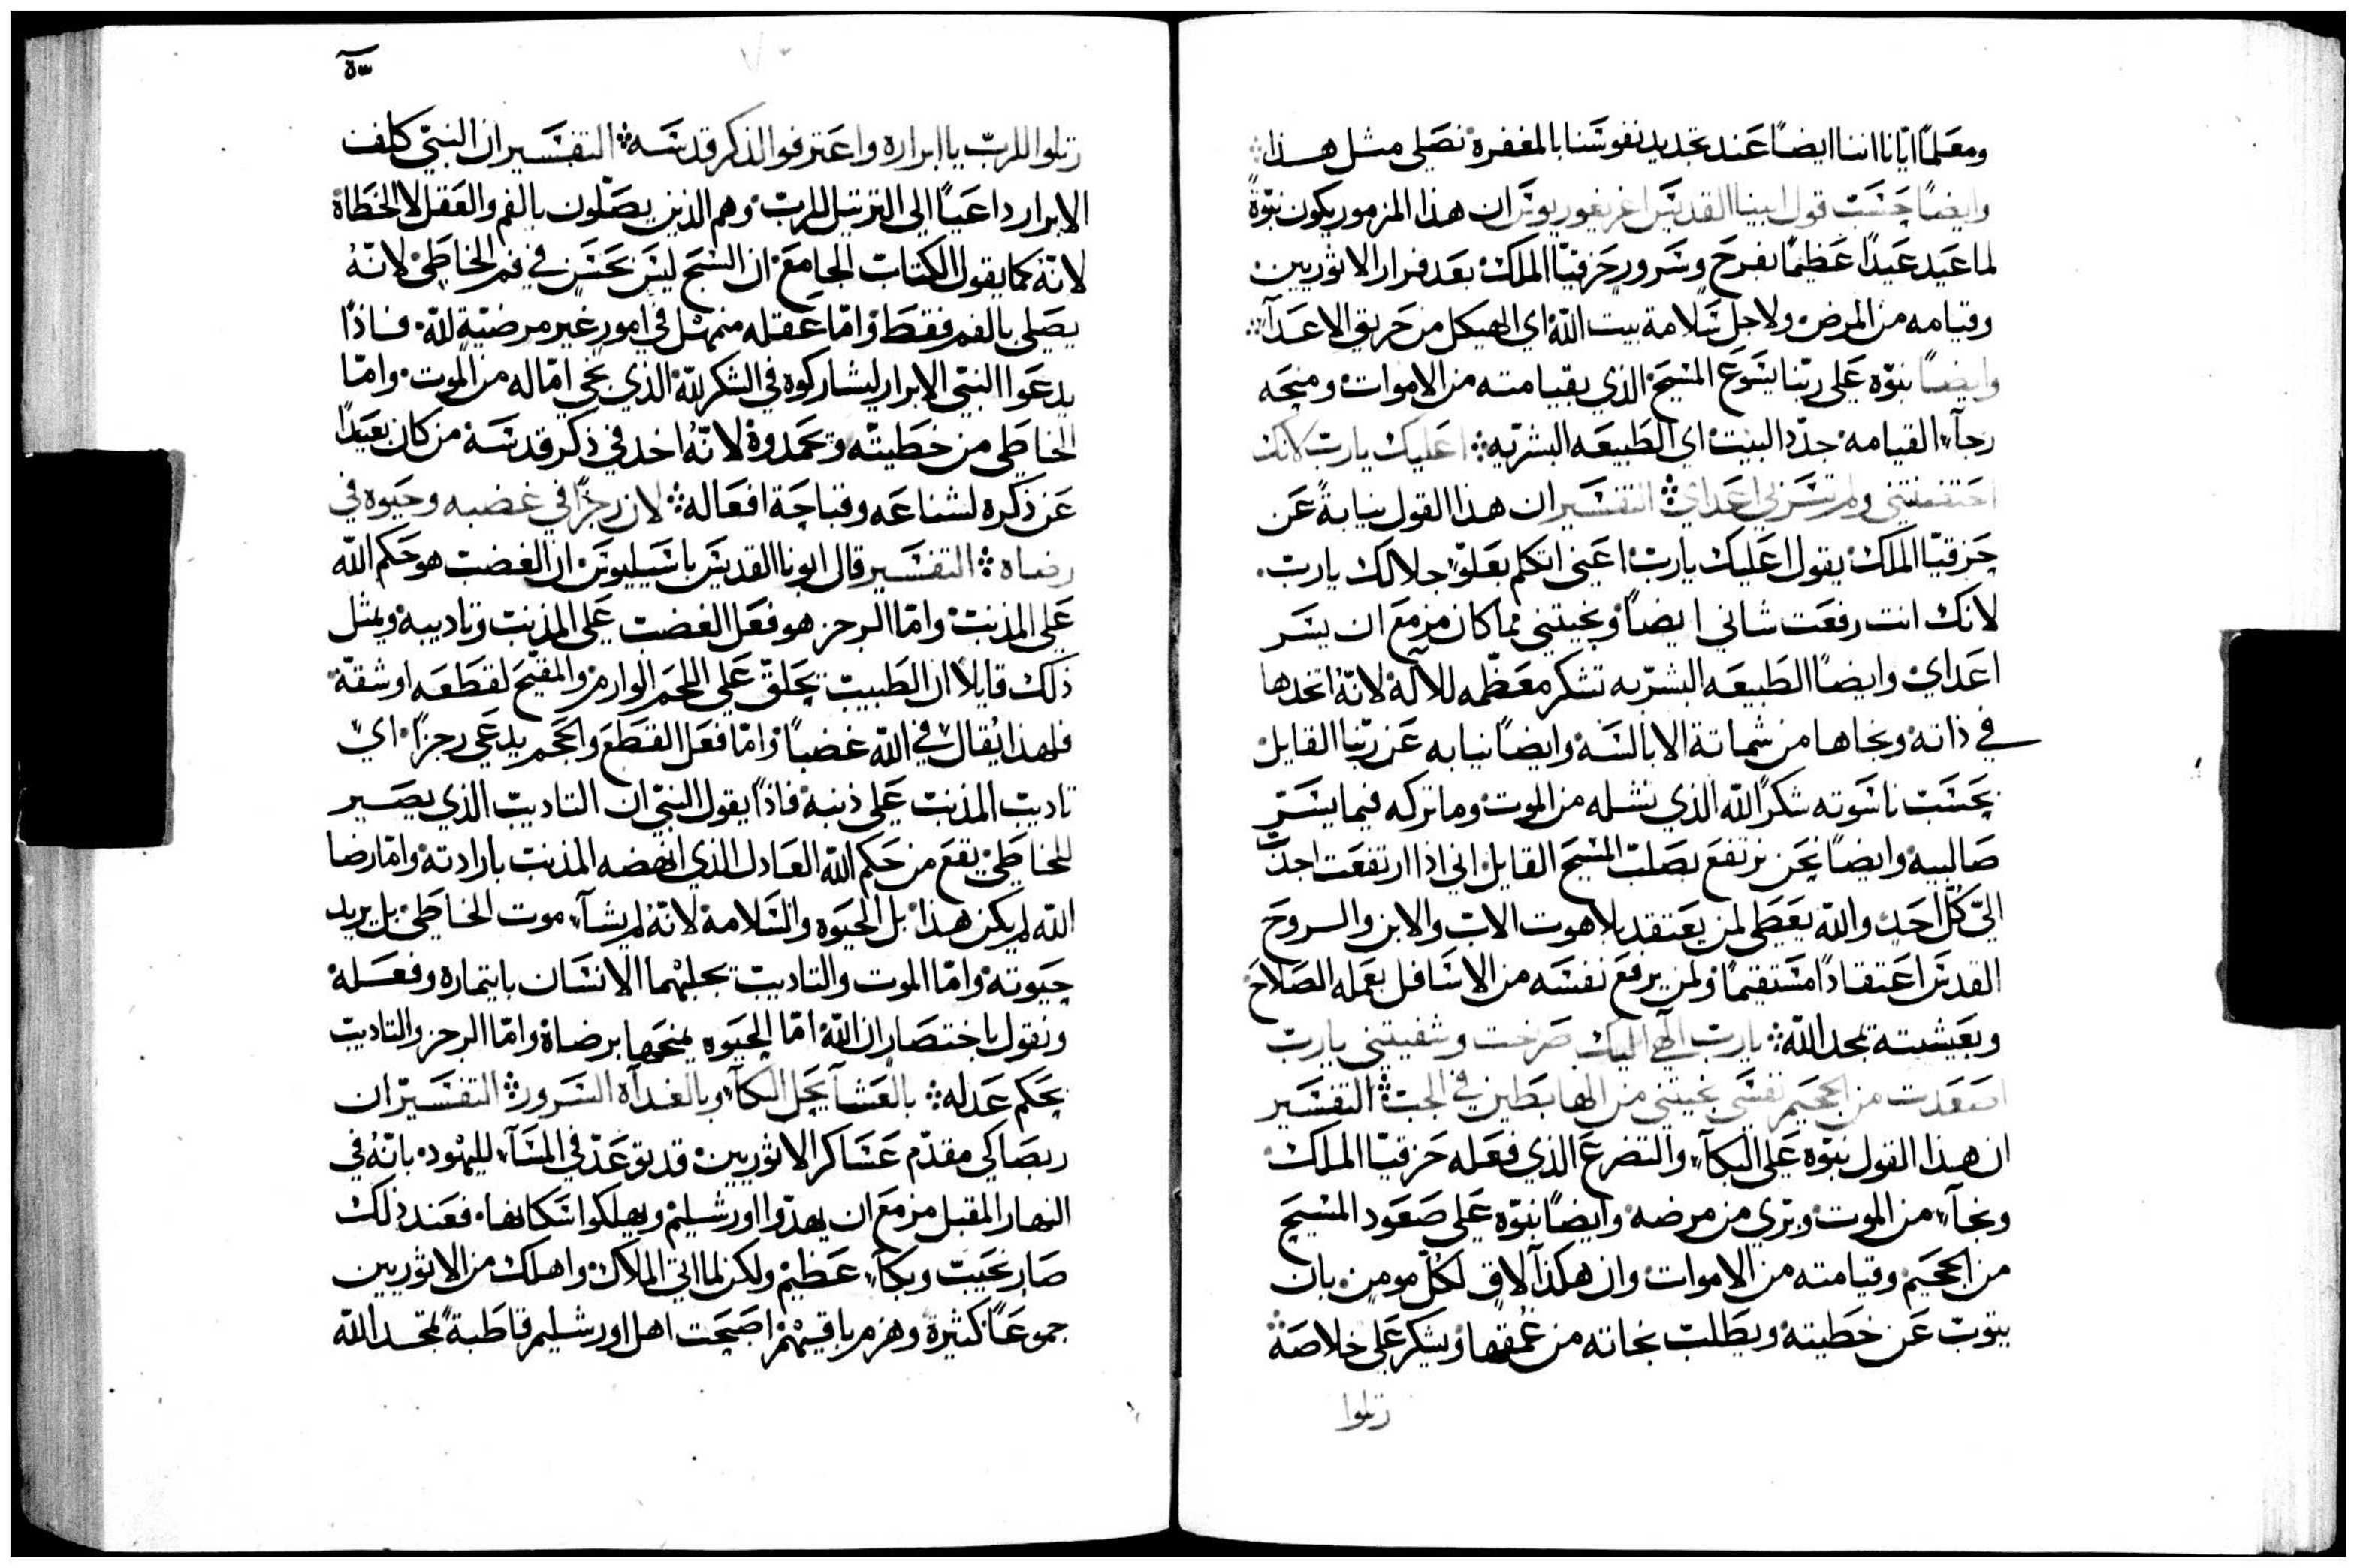 ومعلمًا ايّانا اننا ايضًا عند تجديد نفوسنا بالمغفرة نصلي مثل هذا
وايضًا حسب قول ابينا القديس اغريغوريوس ان هذا المزمور يكون نبوّةً
لما عيد عيدًا عظيمًا بفرح وسرور حزقيّا الملك بعد فرار الاثوريين
وقيامه من المرض ولاجل سلامة بيت الله اي الهيكل من حريق الاعدآ
وايضًا نبوّه على ربّنا يسوع المسيح الذي بقيامته من الاموات ومنحه
رجآء القيامه جدّد البيت اي الطبيعه البشريّه اعليك يارب لانك
احتضنتني ولم تسر بي اعداي التفسير ان هذا القول نيابةً عن
حزقيّا الملك يقول اعليك يارب اعني اتكلم بعلوّ جلالك يارب
لانك انت رفعت شاني ايضًا ونجيتني مما كان مزمع ان يسر
اعداي وايضًا الطبيعه البشريه تشكر معظّمه للاله لانّهُ اتحدها
في ذاته ونجاها من شماتة الابالسه وايضًا نيابه عن ربّنا القايل
بحسب ناسوته شكرًا لله الذي نشله من الموت وما تركه فيما يسرّ
صالبيه وايضًا نحن نرتفع بصلب المسيح القايل اني اذا ارتفعت اجذب
اليّ كلّ احد والله يعطي لمن يعتقد بلاهوت الاب والابن والروح
القدس اعتقادًا مستقيمًا ولمن يرفع نفسه من الاسافل بعمله الصلاح
وبعيشته لمجد الله يارب الهي اليك صرخت وشفيتني يارب
اصعدت من الجحيم نفسي نجيتني من الهابطين في الجب التفسير
ان هذا القول نبوّه على البكآء والتضرع الذي فعله حزقيّا الملك
ونجآء من الموت وبري من مرضه وايضًا نبوّه على صعود المسيح
من الجحيم وقيامته من الاموات وان هكذا لاق لكلّ مومن بان
يتوب عن خطيته ويطلب نجاته من عمقها ويشكر على خلاصه
رتلوا
رتلوا للربّ يا ابراره واعترفوا لذكر قدسه التفسير ان النبيّ كلف
الابرار داعيًا الى الترتيل للرب وهم الذين يصلّون بالفم والعقل لا الخطاة
لانّهُ كما يقول الكتاب الجامع ان السبح ليس يحسن في فم الخاطي لانّهُ
يصلي بالفم فقط وامّا عقله منهمل في امور غير مرضيّه لله فاذًا
يدعوا النبيّ الابرار ليشاركوه في الشكر لله الذي نجي امّا له من الموت وامّا
الخاطي من خطيته وتحمدوه لانّهُ اخد في ذكر قدسه من كان بعيدًا
عن ذكره لشناعه وقباحة افعاله لان رجزًا في غضبه وحيوه في
رضاه التفسير قال ابونا القديس باسيليوس ان الغضب هو حكم الله
على المذنب وامّا الرجز هو فعل الغضب على المذنب وتاديبه ويمثل
ذلك قايلا ان الطبيب يحلقّ على اللحم الوارم والمقيّح لقطعه او شقّه
فلهذا يُقال في الله غضبًا وامّا فعل القطع والحجم يدعى رجزًا اي
تاديب المذنب على ذنبه فاذًا يقول النبيّ ان التاديب الذي يصير
للخاطي يقع من حكم الله العادل الذي انهضه المذنب بارادته وامّا رضا
الله لم يكن هذا بل الحيوه والسلامه لانّهُ لم يشآء موت الخاطي بل يريد
حيوته وامّا الموت والتاديب يجلبهما الانسان بايتماره وفعله
ونقول باختصار ان الله امّا الحيوه يمنحها برضاه وامّا الرجز والتاديب
بحكم عدله بالعشآ يحل البكآء وبالغدآه السرور التفسير ان
ربصاكي مقدّم عساكر الاثوريين قد توعّد في المسآء لليهود بانّهُ في
النهار المقبل مزمع ان يهدّوا اورشليم ويهلكوا سكانها فعند ذلك
صار نحيب وبكآء عظيم ولكن لما اتى الملاك واهلك من الاثوريين
جموعًا كثيرة وهزم باقيهم اصبحت اهل اورشليم قاطبةً تمجد الله